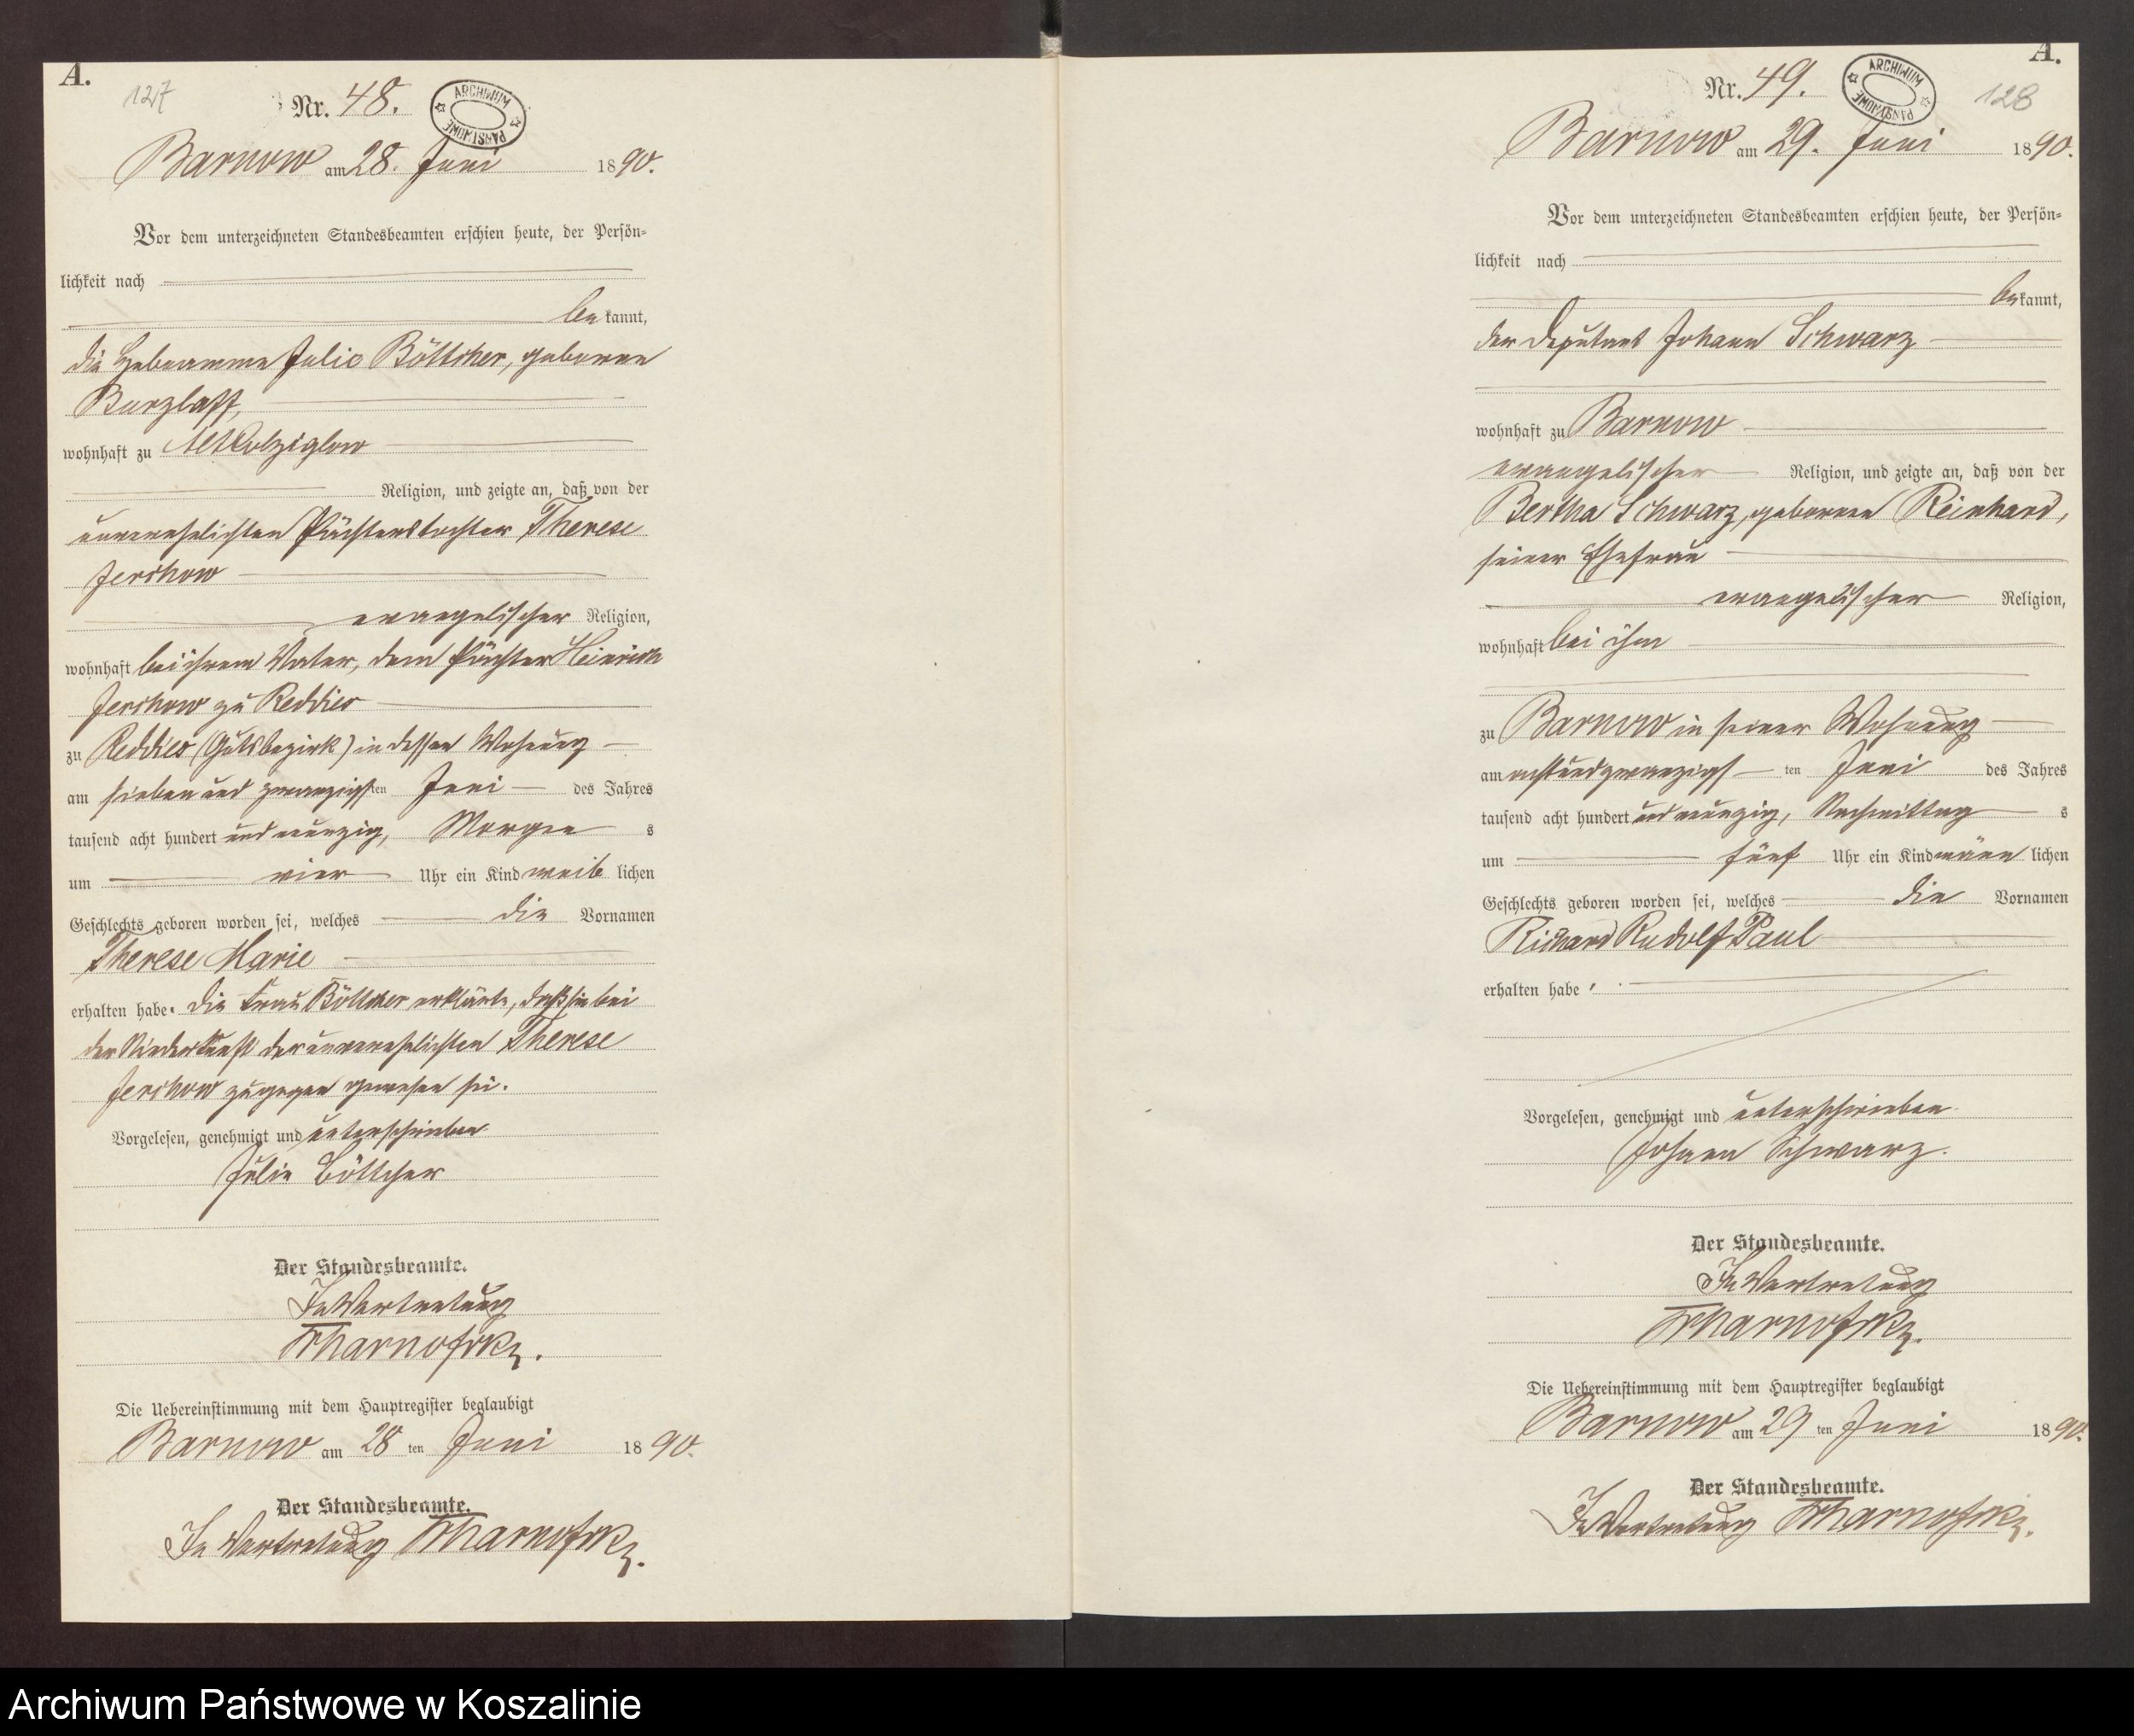 A.
127
Nr. 48.
ARCHIWUM PAŃSTWOWE
Barnow am 28. Juni 1890.
Vor dem unterzeichneten Standesbeamten erschien heute, der Persön=
lichkeit nach
be kannt,
die Hebeamme Julie Böttcher, geborene
Burzlaff,
wohnhaft zu Alt Colziglow
Religion, und zeigte an, daß von der
unverehelichten Pächterstochter Therese
Jeschow
evangelischer Religion,
wohnhaft bei ihrem Vater, dem Pächter Heinrich
Jeschow zu Reddies
zu Reddies (Gutsbezirk) in dessen Wohnung
am sieben und zwanzigsten Juni des Jahres
tausend acht hundert und neunzig, Morgen s
um vier Uhr ein Kind weib lichen
Geschlechts geboren worden sei, welches die Vornamen
Therese Marie
erhalten habe. Die Frau Böttcher erklärte, daß sie bei
der Niederkunft der unverehelichten Therese
Jeschow zugegen gewesen sei.
Vorgelesen, genehmigt und unterschrieben
Julie Böttcher
Der Standesbeamte.
In Vertretung
Die Uebereinstimmung mit dem Hauptregister beglaubigt
Barnow am 28 ten Juni 1890.
Der Standesbeamte.
In Vertretung
A.
Nr. 49.
ARCHIWUM PAŃSTWOWE
128
Barnow am 29. Juni 1890.
Vor dem unterzeichneten Standesbeamten erschien heute, der Persön=
lichkeit nach
be kannt,
der Deputant Johann Schwarz
wohnhaft zu Barnow
evangelischer Religion, und zeigte an, daß von der
Bertha Schwarz, geborene Reinhard,
seiner Ehefrau
evangelischer Religion,
wohnhaft bei ihm
zu Barnow in seiner Wohnung
am achtundzwanzigs ten Juni des Jahres
tausend acht hundert und neunzig, Nachmittag s
um fünf Uhr ein Kind männ lichen
Geschlechts geboren worden sei, welches die Vornamen
Richard Rudolf Paul
erhalten habe.
Vorgelesen, genehmigt und unterschrieben
Johann Schwarz.
Der Standesbeamte.
In Vertretung
Die Uebereinstimmung mit dem Hauptregister beglaubigt
Barnow am 29 ten Juni 1890.
Der Standesbeamte.
In Vertretung
Archiwum Państwowe w Koszalinie